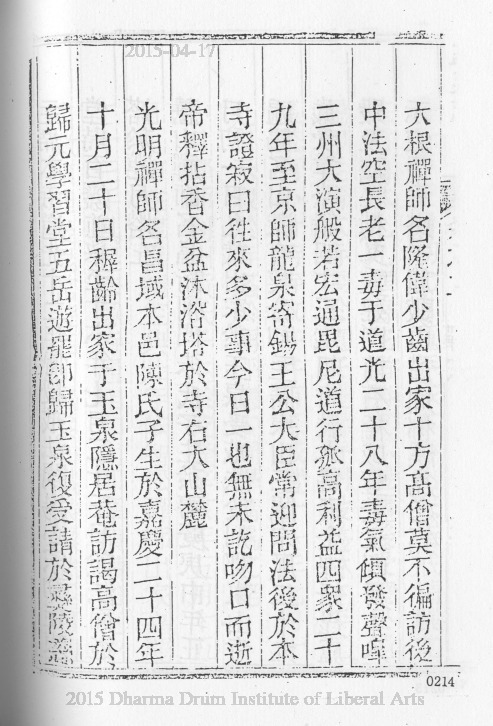 2015-04-17
六根禪師名隆偉少齒出家十方高僧莫不徧訪後
中法空長老一毒于道光二十八年毒氣傾發聲嘩
三州大演般若宏通毘尼道行孤高利益四衆二十
九年至京師龍泉寄錫王公大臣常迎問法後於本
寺證寂曰徃來多少事今日一也無末訖吻口而逝
帝釋拈香金盆沐浴塔於寺右大山麓
光明禪師名昌域本邑陳氏子生於嘉慶二十四年
十月二十日穉齡出家于玉泉隱居菴訪謁高僧於
歸元學習堂五岳遊罷即歸玉泉復受請於
0214
2015 Dharma Drum Institute of Liberal Arts